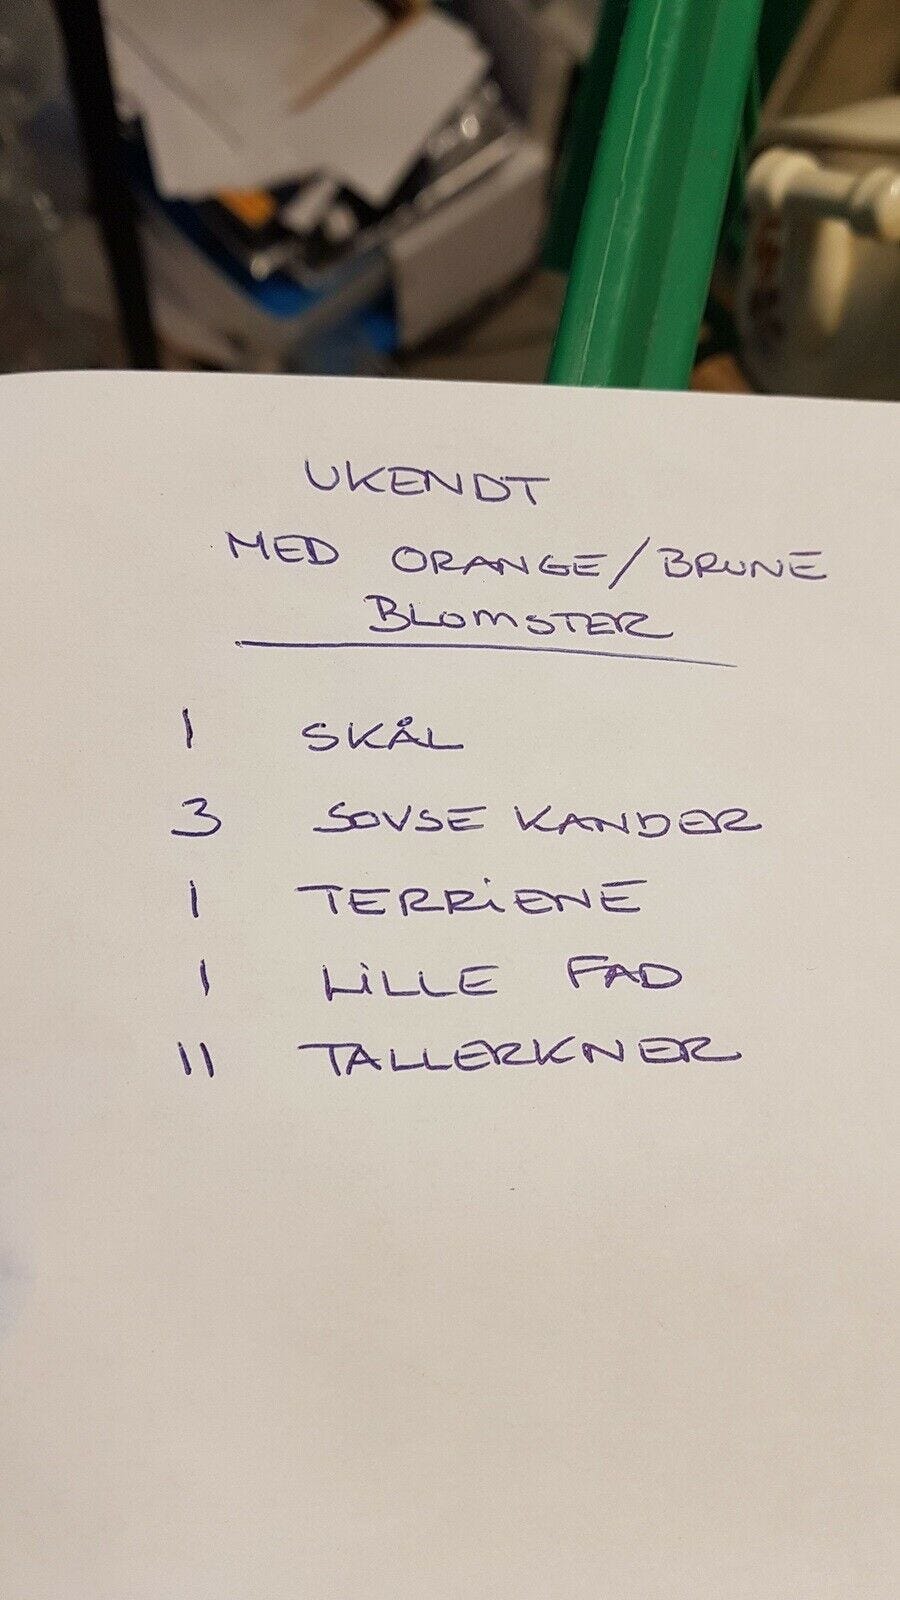 UKENDT
MED ORANGE/BRUNE
BLOMSTER
1 SKÅL
3 SOVSE KANDER
1 TERRIENE
1 LILLE FAD
11 TALLERKNER